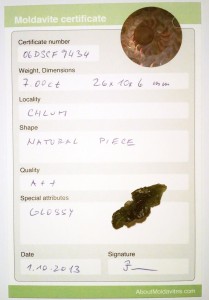 Moldavite certificate
Certificate number
06DSCF9434
Weight, Dimensions
7.00ct 26x10x6 mm
Locality
CHLUM
Shape
NATURAL PIECE
Quality
A++
Special attributes
GLOSSY
Date
Signature
1.10.2013
AboutMoldavites.com